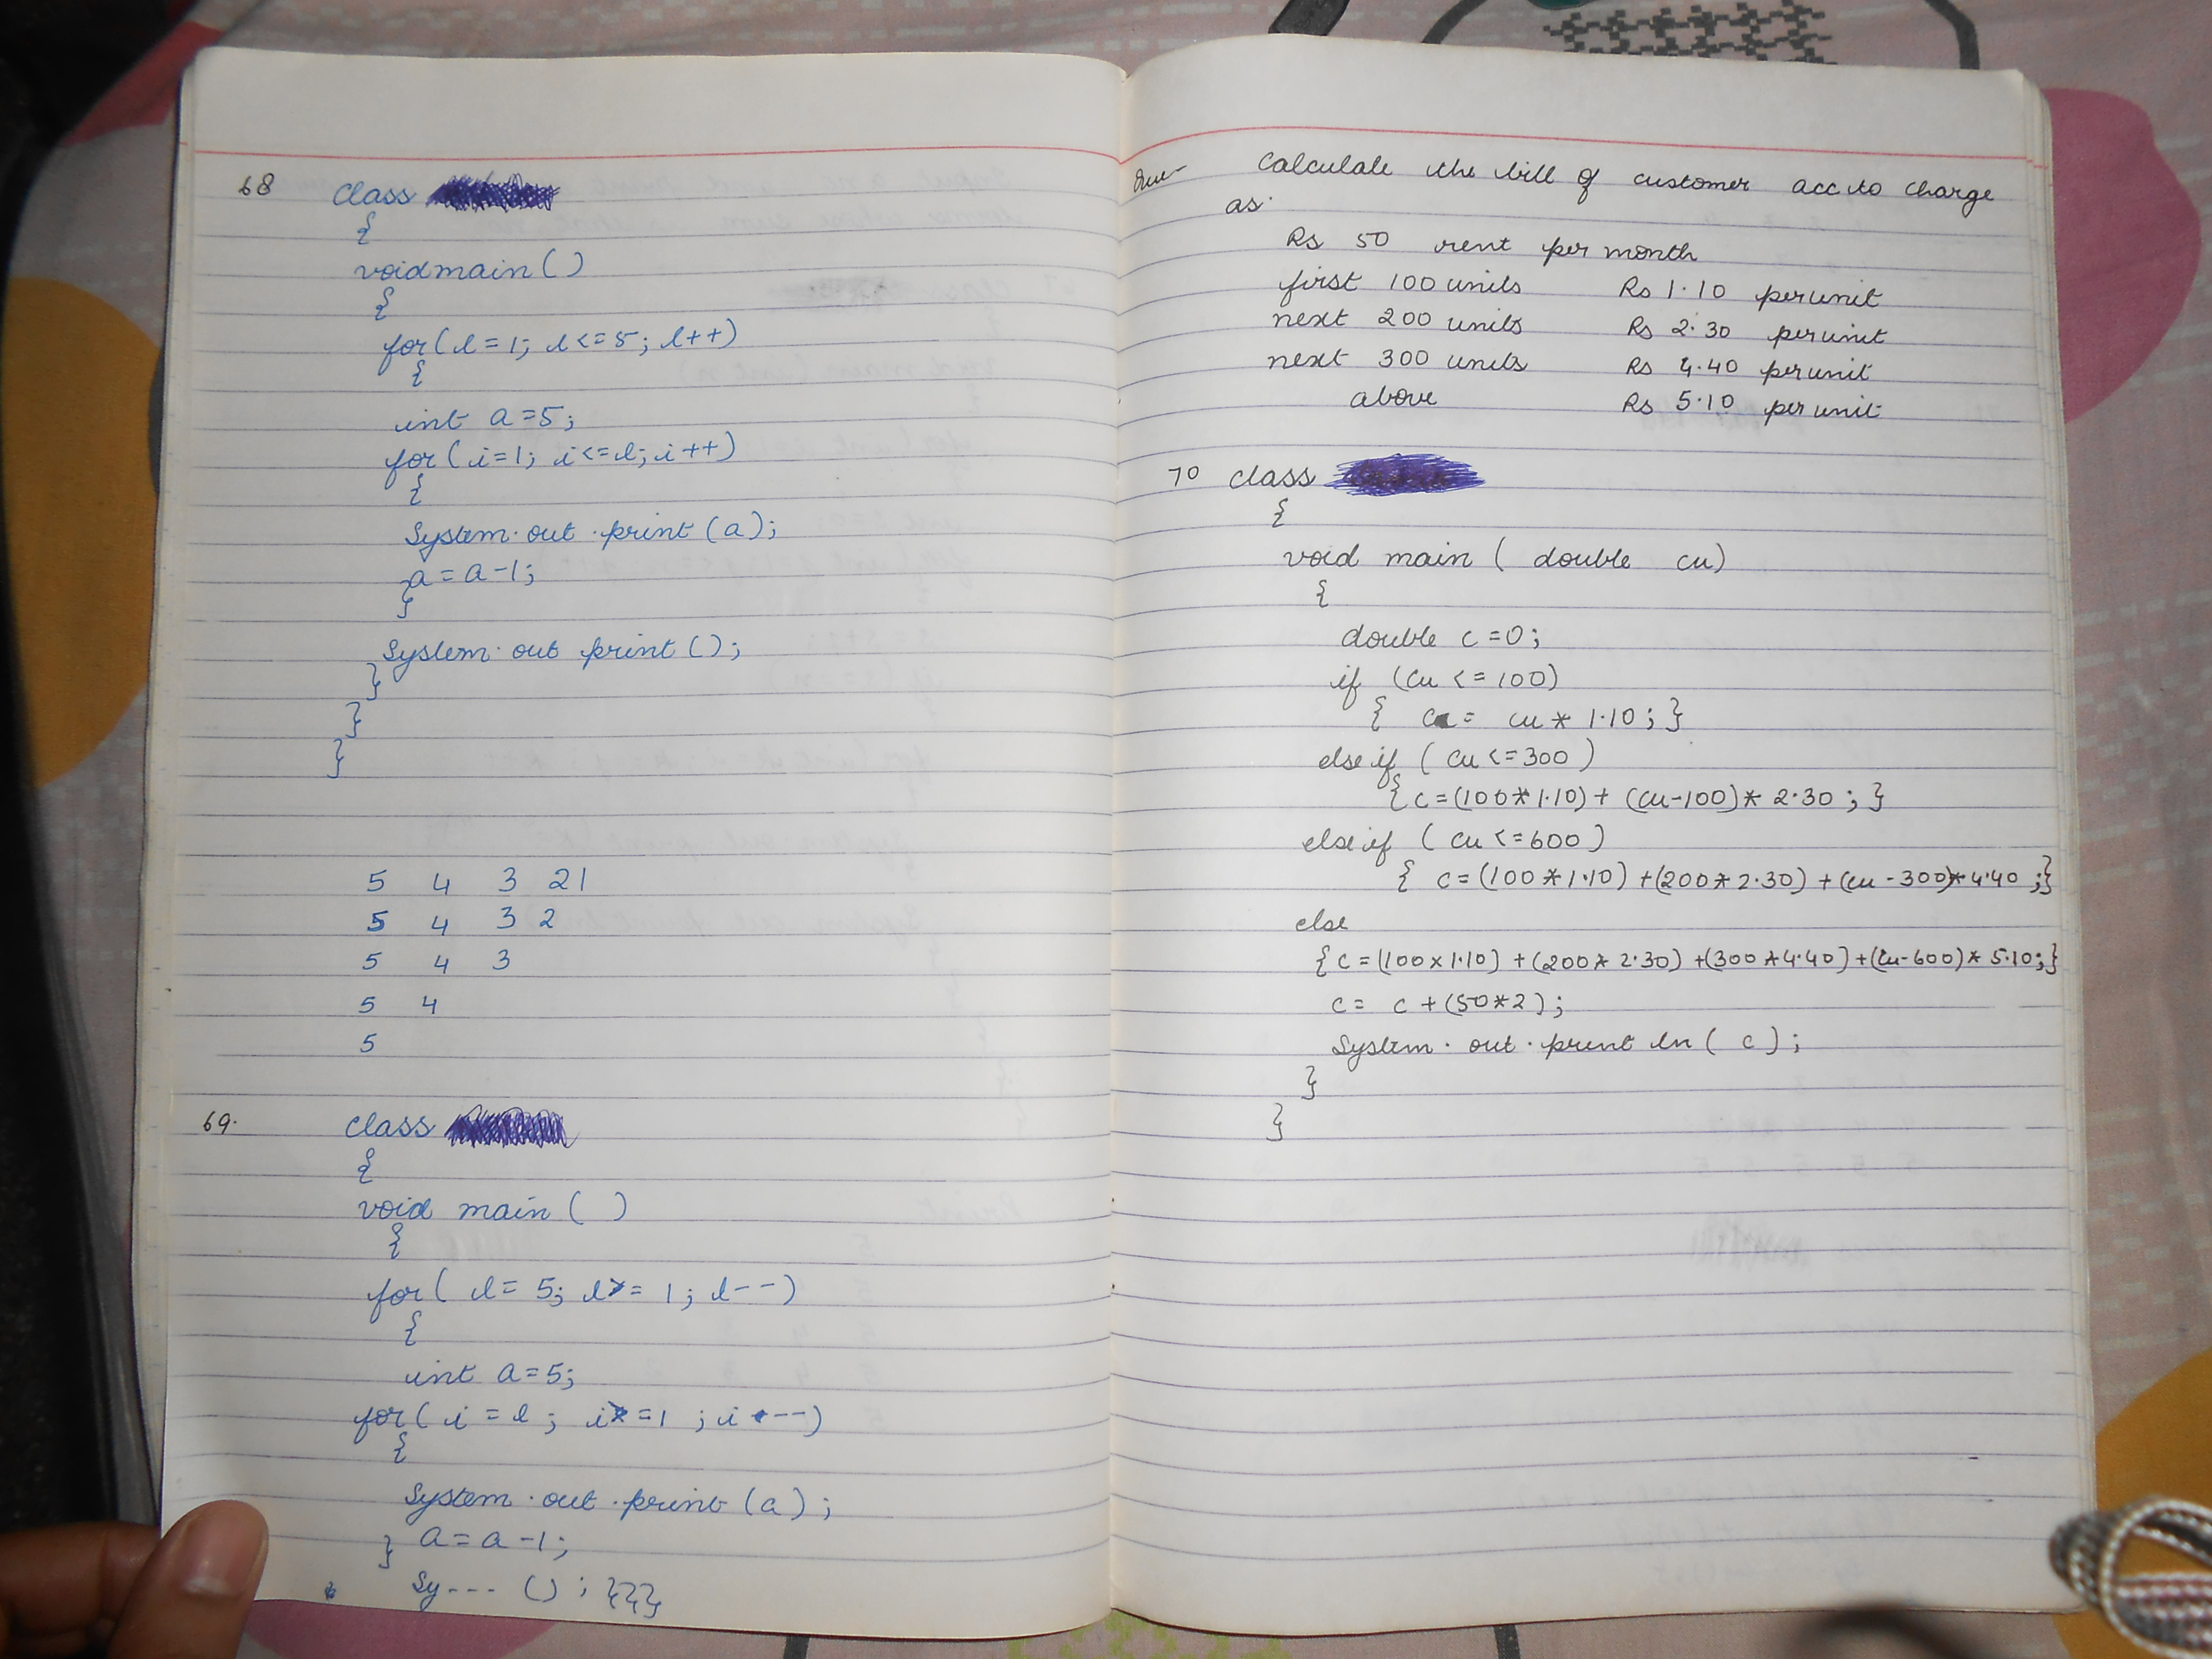 68 class
{
void main ( )
{
for ( l = 1; l <= 5; l++)
{
int a = 5;
for ( i = 1; i <= l; i ++)
{
System. out . print (a);
a = a - 1;
}
System. out print ( );
}
}
}
5 4 3 2 1
5 4 3 2
5 4 3
5 4
5
69. class
{
void main ( )
{
for ( l = 5; l >= 1; l --)
{
int a = 5;
for ( i = l ; i >= 1 ; i --)
{
System . out . print (a) ;
} a = a - 1;
Sy --- ( ) ; }}}
Calculate the bill of customer acc to charge
as.
Rs 50 rent per month
first 100 units Rs 1.10 per unit
next 200 units Rs 2.30 per unit
next 300 units Rs 4.40 per unit
above Rs 5.10 per unit
70 class
{
void main ( double cu)
{
double c = 0;
if (cu <= 100)
{ c = cu * 1.10 ; }
else if ( cu <= 300 )
{ c = (100 * 1.10) + (cu-100) * 2.30 ; }
else if ( cu <= 600 )
{ c = (100 * 1.10) + (200 * 2.30) + (cu - 300) * 4.40 ; }
else
{ c = (100 x 1.10) + (200 * 2.30) + (300 * 4.40) + (cu-600) * 5.10; }
c = c + (50 * 2) ;
System . out . print ln ( c ) ;
}
}